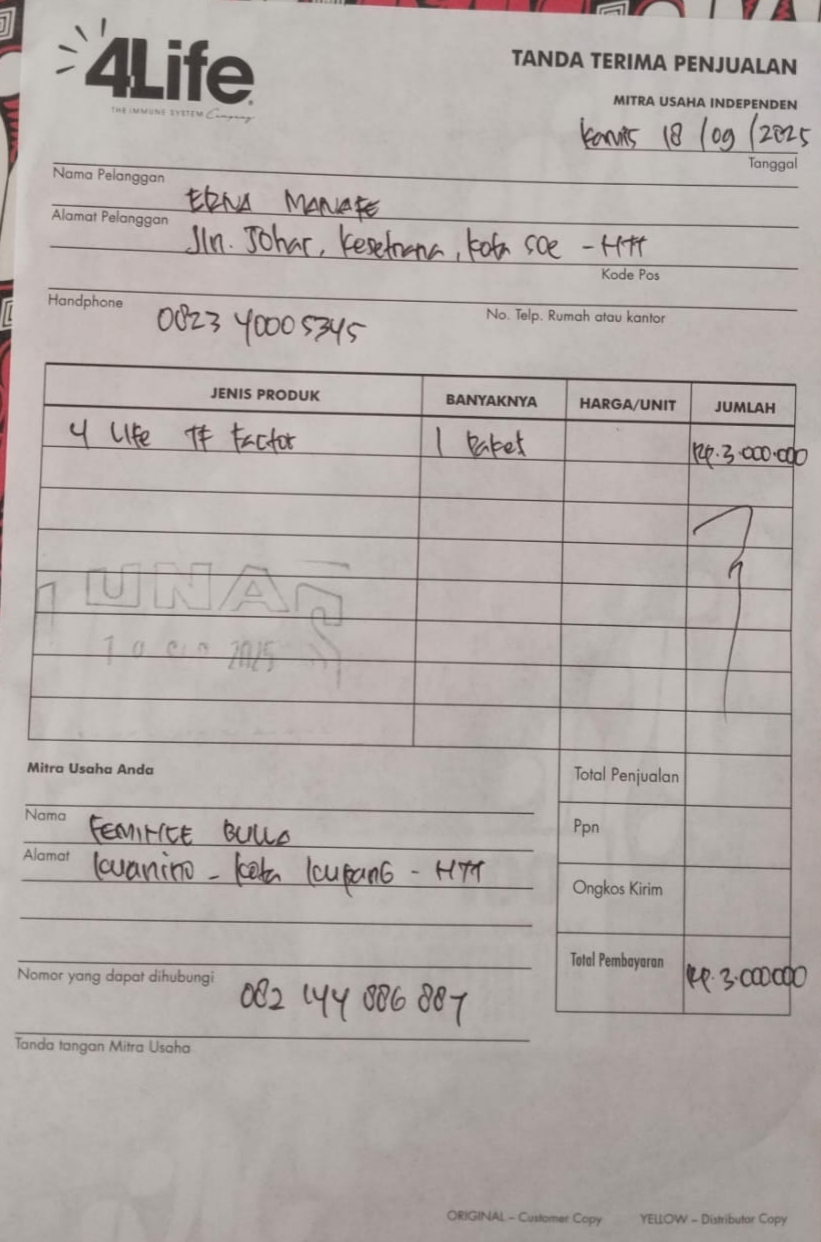 4Life
THE IMMUNE SYSTEM Company
TANDA TERIMA PENJUALAN
MITRA USAHA INDEPENDEN
Kamis 18/09/2025
Tanggal
Nama Pelanggan
ERNA MANAFE
Alamat Pelanggan
Jln. Johar, Kesetnana, Kota SOE - NTT
Kode Pos
Handphone
0823 40005345
No. Telp. Rumah atau kantor
JENIS PRODUK BANYAKNYA HARGA/UNIT JUMLAH
4 Life TF Factor 1 Paket Rp. 3.000.000
LUNAS
2025
Mitra Usaha Anda
Nama
FEMINCE BULLO
Alamat
Kuanino - Kota Kupang - NTT
Nomor yang dapat dihubungi
082 144 886 887
Tanda tangan Mitra Usaha
Total Penjualan
Ppn
Ongkos Kirim
Total Pembayaran Rp. 3.000.000
ORIGINAL – Customer Copy YELLOW – Distributor Copy